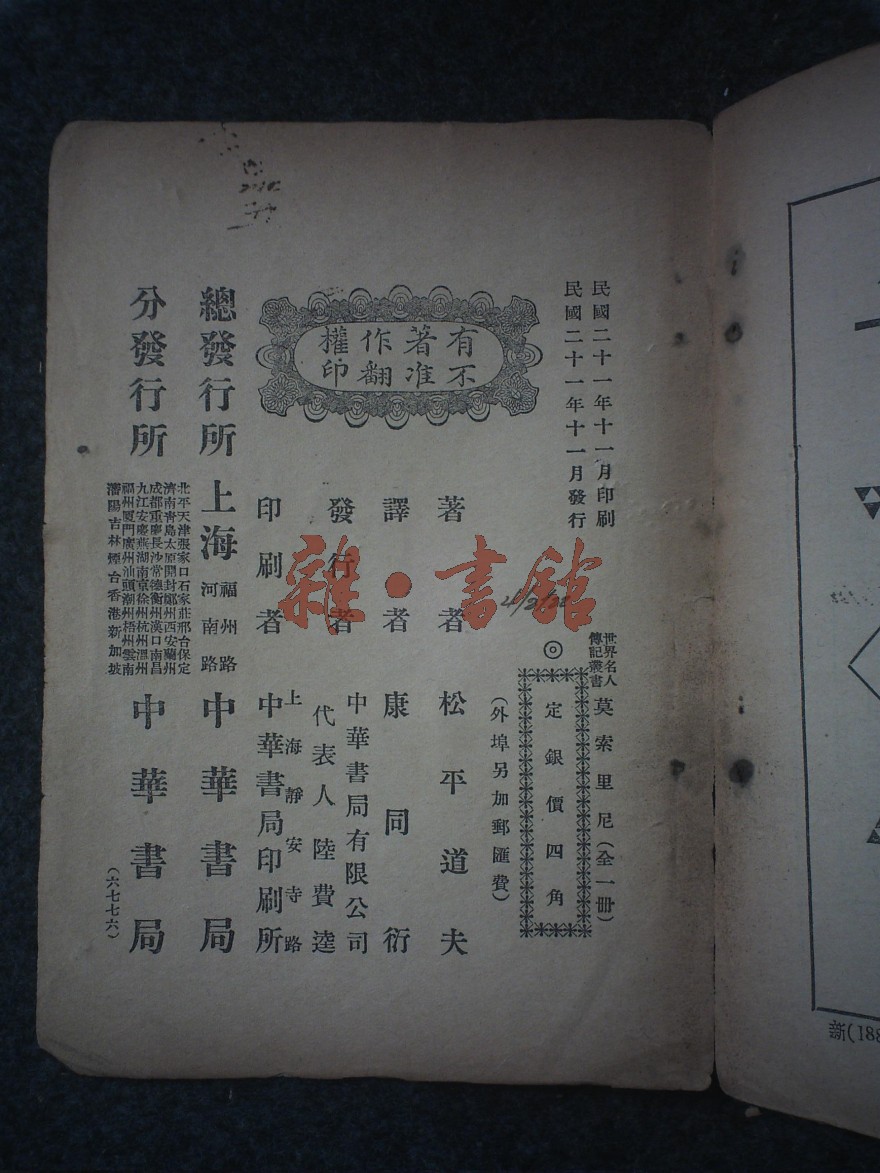 民國二十一年十一月印刷
民國二十一年十一月發行
世界名人
傳記叢書
莫索里尼(全一冊)
◎
定銀價四角
(外埠另加郵匯費)
有著作權
不准翻印
著者 松平道夫
譯者 康同衍
發行者 中華書局有限公司
代表人 陸費逵
印刷者 上海靜安寺路
中華書局印刷所
總發行所 上海 福州路
河南路 中華書局
分發行所
北平天津張家口石家莊邢台保定
濟南青島太原開封鄭州西安蘭州
成都重慶長沙常德衡州漢口南昌
九江安慶蕪湖南京徐州杭州溫州
福州厦門廣州汕頭潮州梧州雲南
瀋陽吉林煙台香港新加坡
中華書局
(六七七六)
雜·書館
新(188